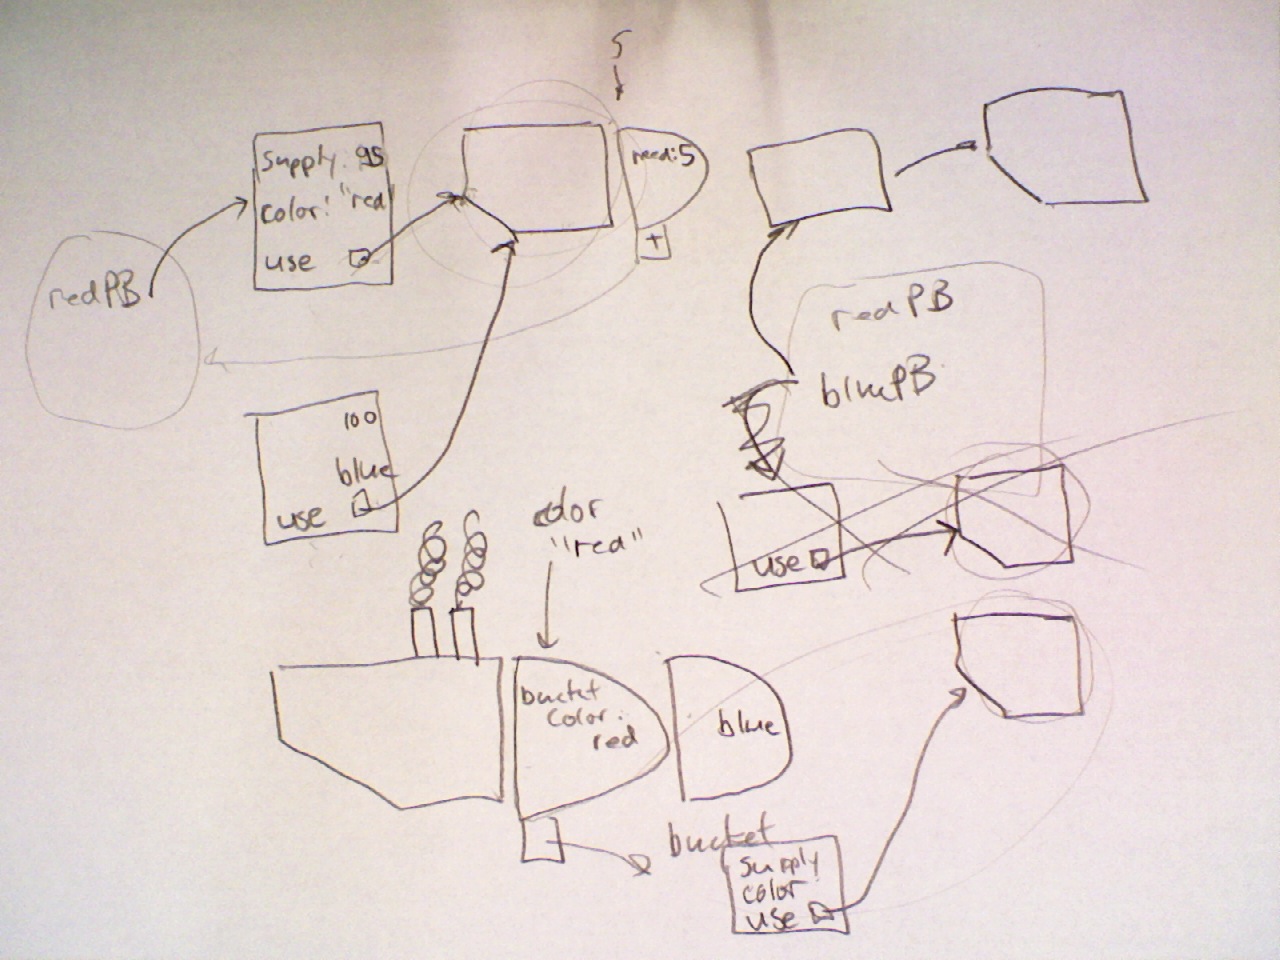 5
Supply: 95
color: "red"
use
need: 5
+
redPB
redPB
bluePB
100
blue
use
color
"red"
use
bucket
color:
red
blue
bucket
supply
color
use